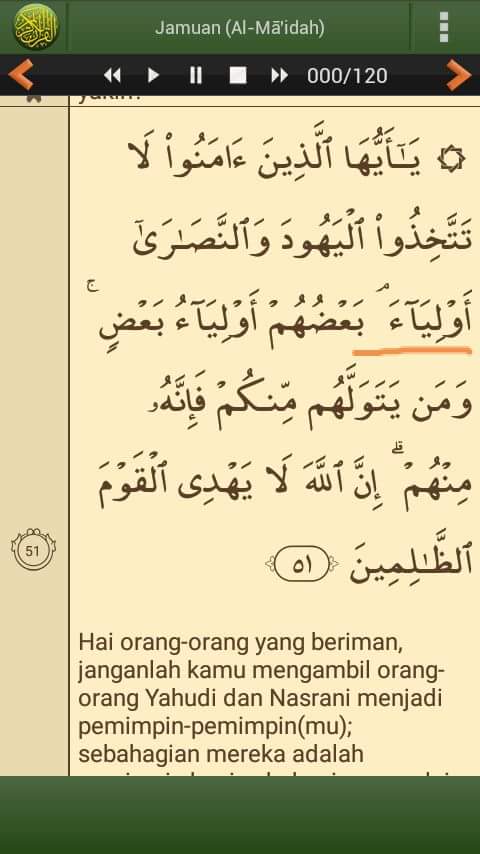 Jamuan (Al-Mā'idah)
000/120
yakin?
۞ يَـٰٓأَيُّهَا ٱلَّذِينَ ءَامَنُوا۟ لَا
تَتَّخِذُوا۟ ٱلْيَهُودَ وَٱلنَّصَـٰرَىٰٓ
أَوْلِيَآءَ ۘ بَعْضُهُمْ أَوْلِيَآءُ بَعْضٍ ۚ
وَمَن يَتَوَلَّهُم مِّنكُمْ فَإِنَّهُۥ
مِنْهُمْ ۗ إِنَّ ٱللَّهَ لَا يَهْدِى ٱلْقَوْمَ
ٱلظَّـٰلِمِينَ ٥١
51
Hai orang-orang yang beriman,
janganlah kamu mengambil orang-
orang Yahudi dan Nasrani menjadi
pemimpin-pemimpin(mu);
sebahagian mereka adalah